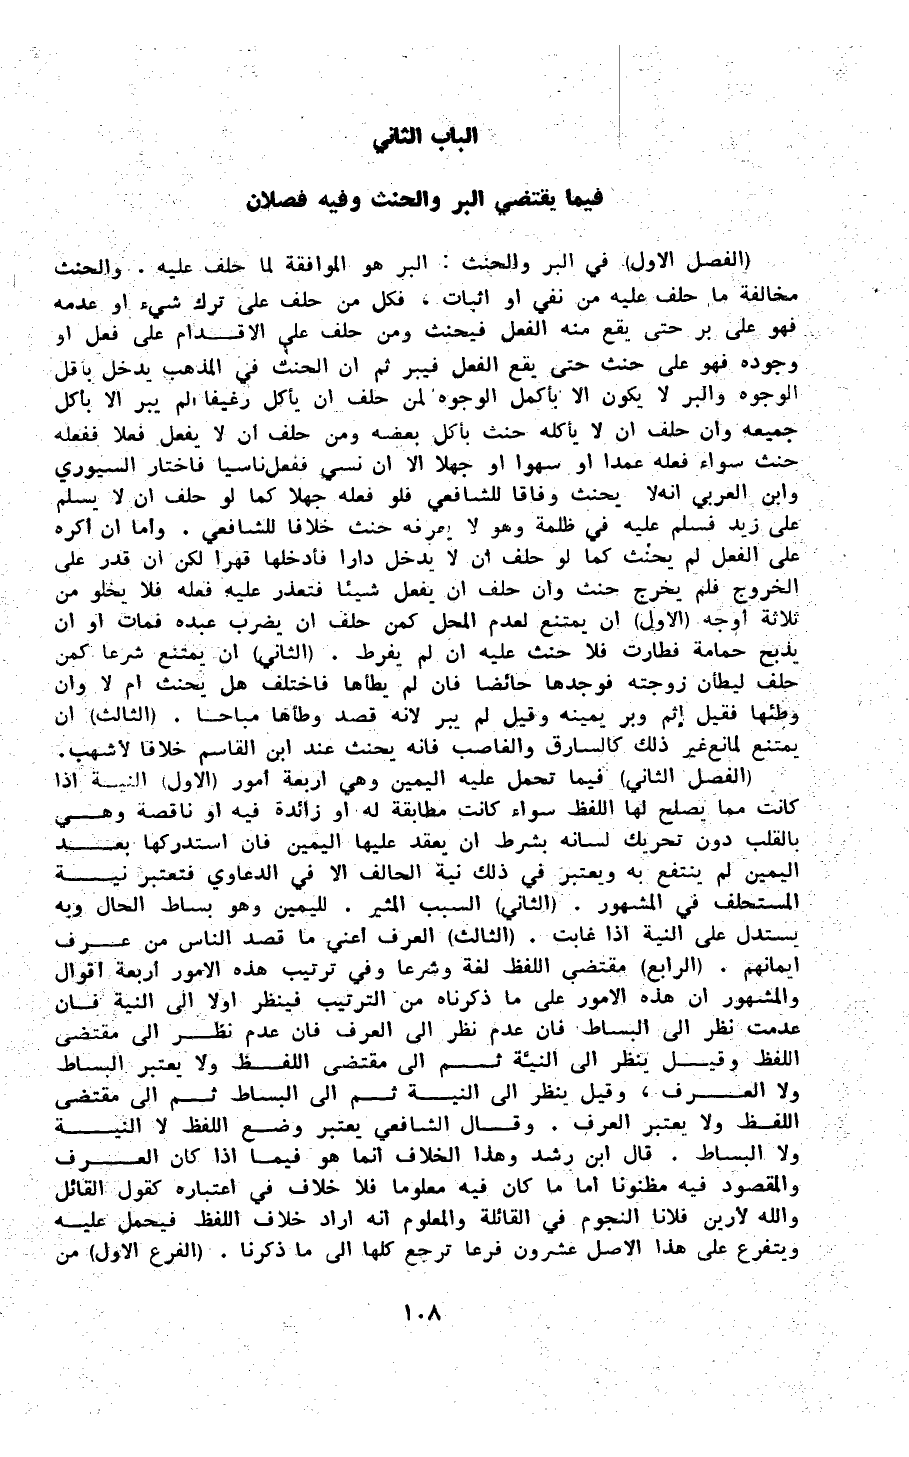 الباب الثاني
فيما يقتضي البر والحنث وفيه فصلان
(الفصل الاول) في البر والحنث : البر هو الموافقة لما حلف عليه . والحنث
مخالفة ما حلف عليه من نفي او اثبات ، فكل من حلف على ترك شيء او عدمه
فهو على بر حتى يقع منه الفعل فيحنث ومن حلف على الاقـدام على فعل او
وجوده فهو على حنث حتى يقع الفعل فيبر ثم ان الحنث في المذهب يدخل باقل
الوجوه والبر لا يكون الا بأكمل الوجوه لمن حلف ان يأكل رغيفا لم يبر الا بأكل
جميعه وان حلف ان لا يأكله حنث بأكل بعضه ومن حلف ان لا يفعل فعلا ففعله
حنث سواء فعله عمدا او سهوا او جهلا الا ان نسي ففعل ناسيا فاختار السيوري
وابن العربي انه لا يحنث وفاقا للشافعي فلو فعله جهلا كما لو حلف ان لا يسلم
على زيد فسلم عليه في ظلمة وهو لا يعرفه حنث خلافا للشافعي . وأما ان أكره
على الفعل لم يحنث كما لو حلف أن لا يدخل دارا فأدخلها قهرا لكن ان قدر على
الخروج فلم يخرج حنث وان حلف ان يفعل شيئا فتعذر عليه فعله فلا يخلو من
ثلاثة أوجه (الاول) ان يمتنع لعدم المحل كمن حلف ان يضرب عبده فمات او ان
يذبح حمامة فطارت فلا حنث عليه ان لم يفرط . (الثاني) ان يمتنع شرعا كمن
حلف ليطأن زوجته فوجدها حائضا فان لم يطأها فاختلف هل يحنث ام لا وان
وطئها فقيل إثم وبر يمينه وقيل لم يبر لانه قصد وطأها مباحـا . (الثالث) ان
يمتنع لمانع غير ذلك كالسارق والغاصب فانه يحنث عند ابن القاسم خلافا لاشهب.
(الفصل الثاني) فيما تحمل عليه اليمين وهي أربعة أمور (الاول) النيـة اذا
كانت مما يصلح لها اللفظ سواء كانت مطابقة له او زائدة فيه او ناقصة وهـي
بالقلب دون تحريك لسانه بشرط ان يعقد عليها اليمين فان استدركها بعـد
اليمين لم ينتفع به ويعتبر في ذلك نية الحالف الا في الدعاوي فتعتبر نيـة
المستحلف في المشهور . (الثاني) السبب المثير . لليمين وهو بساط الحال وبه
يستدل على النية اذا غابت . (الثالث) العرف أعني ما قصد الناس من عـرف
ايمانهم . (الرابع) مقتضى اللفظ لغة وشرعا وفي ترتيب هذه الامور أربعة أقوال
والمشهور ان هذه الامور على ما ذكرناه من الترتيب فينظر اولا الى النية فـان
عدمت نظر الى البساط فان عدم نظر الى العرف فان عدم نظـر الى مقتضى
اللفظ وقيـل ينظر الى النية ثـم الى مقتضى اللفـظ ولا يعتبر البساط
ولا العـرف ، وقيل ينظر الى النيـة ثـم الى البساط ثـم الى مقتضى
اللفـظ ولا يعتبر العرف . وقـال الشافعي يعتبر وضـع اللفظ لا النيـة
ولا البساط . قال ابن رشد وهذا الخلاف انما هو فيمـا اذا كان العـرف
والمقصود فيه مظنونا أما ما كان فيه معلوما فلا خلاف في اعتباره كقول القائل
والله لأرين فلانا النجوم في القائلة والمعلوم انه اراد خلاف اللفظ فيحمل عليـه
ويتفرع على هذا الاصل عشرون فرعا ترجع كلها الى ما ذكرنا . (الفرع الاول) من
١٠٨